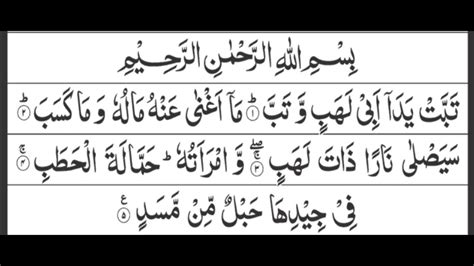 بِسْمِ اللهِ الرَّحْمٰنِ الرَّحِيْمِ
تَبَّتْ يَدَآ اَبِيْ لَهَبٍ وَّ تَبَّ ؕ﴿۱﴾ مَاۤ اَغْنٰى عَنْهُ مَالُهٗ وَ مَا كَسَبَ ؕ﴿۲﴾
سَيَصْلٰى نَارًا ذَاتَ لَهَبٍ ۚۖ﴿۳﴾ وَّ امْرَاَتُهٗ ؕ حَمَّالَةَ الْحَطَبِ ۚ﴿۴﴾
فِيْ جِيْدِهَا حَبْلٌ مِّنْ مَّسَدٍ ﴿۵﴾ع